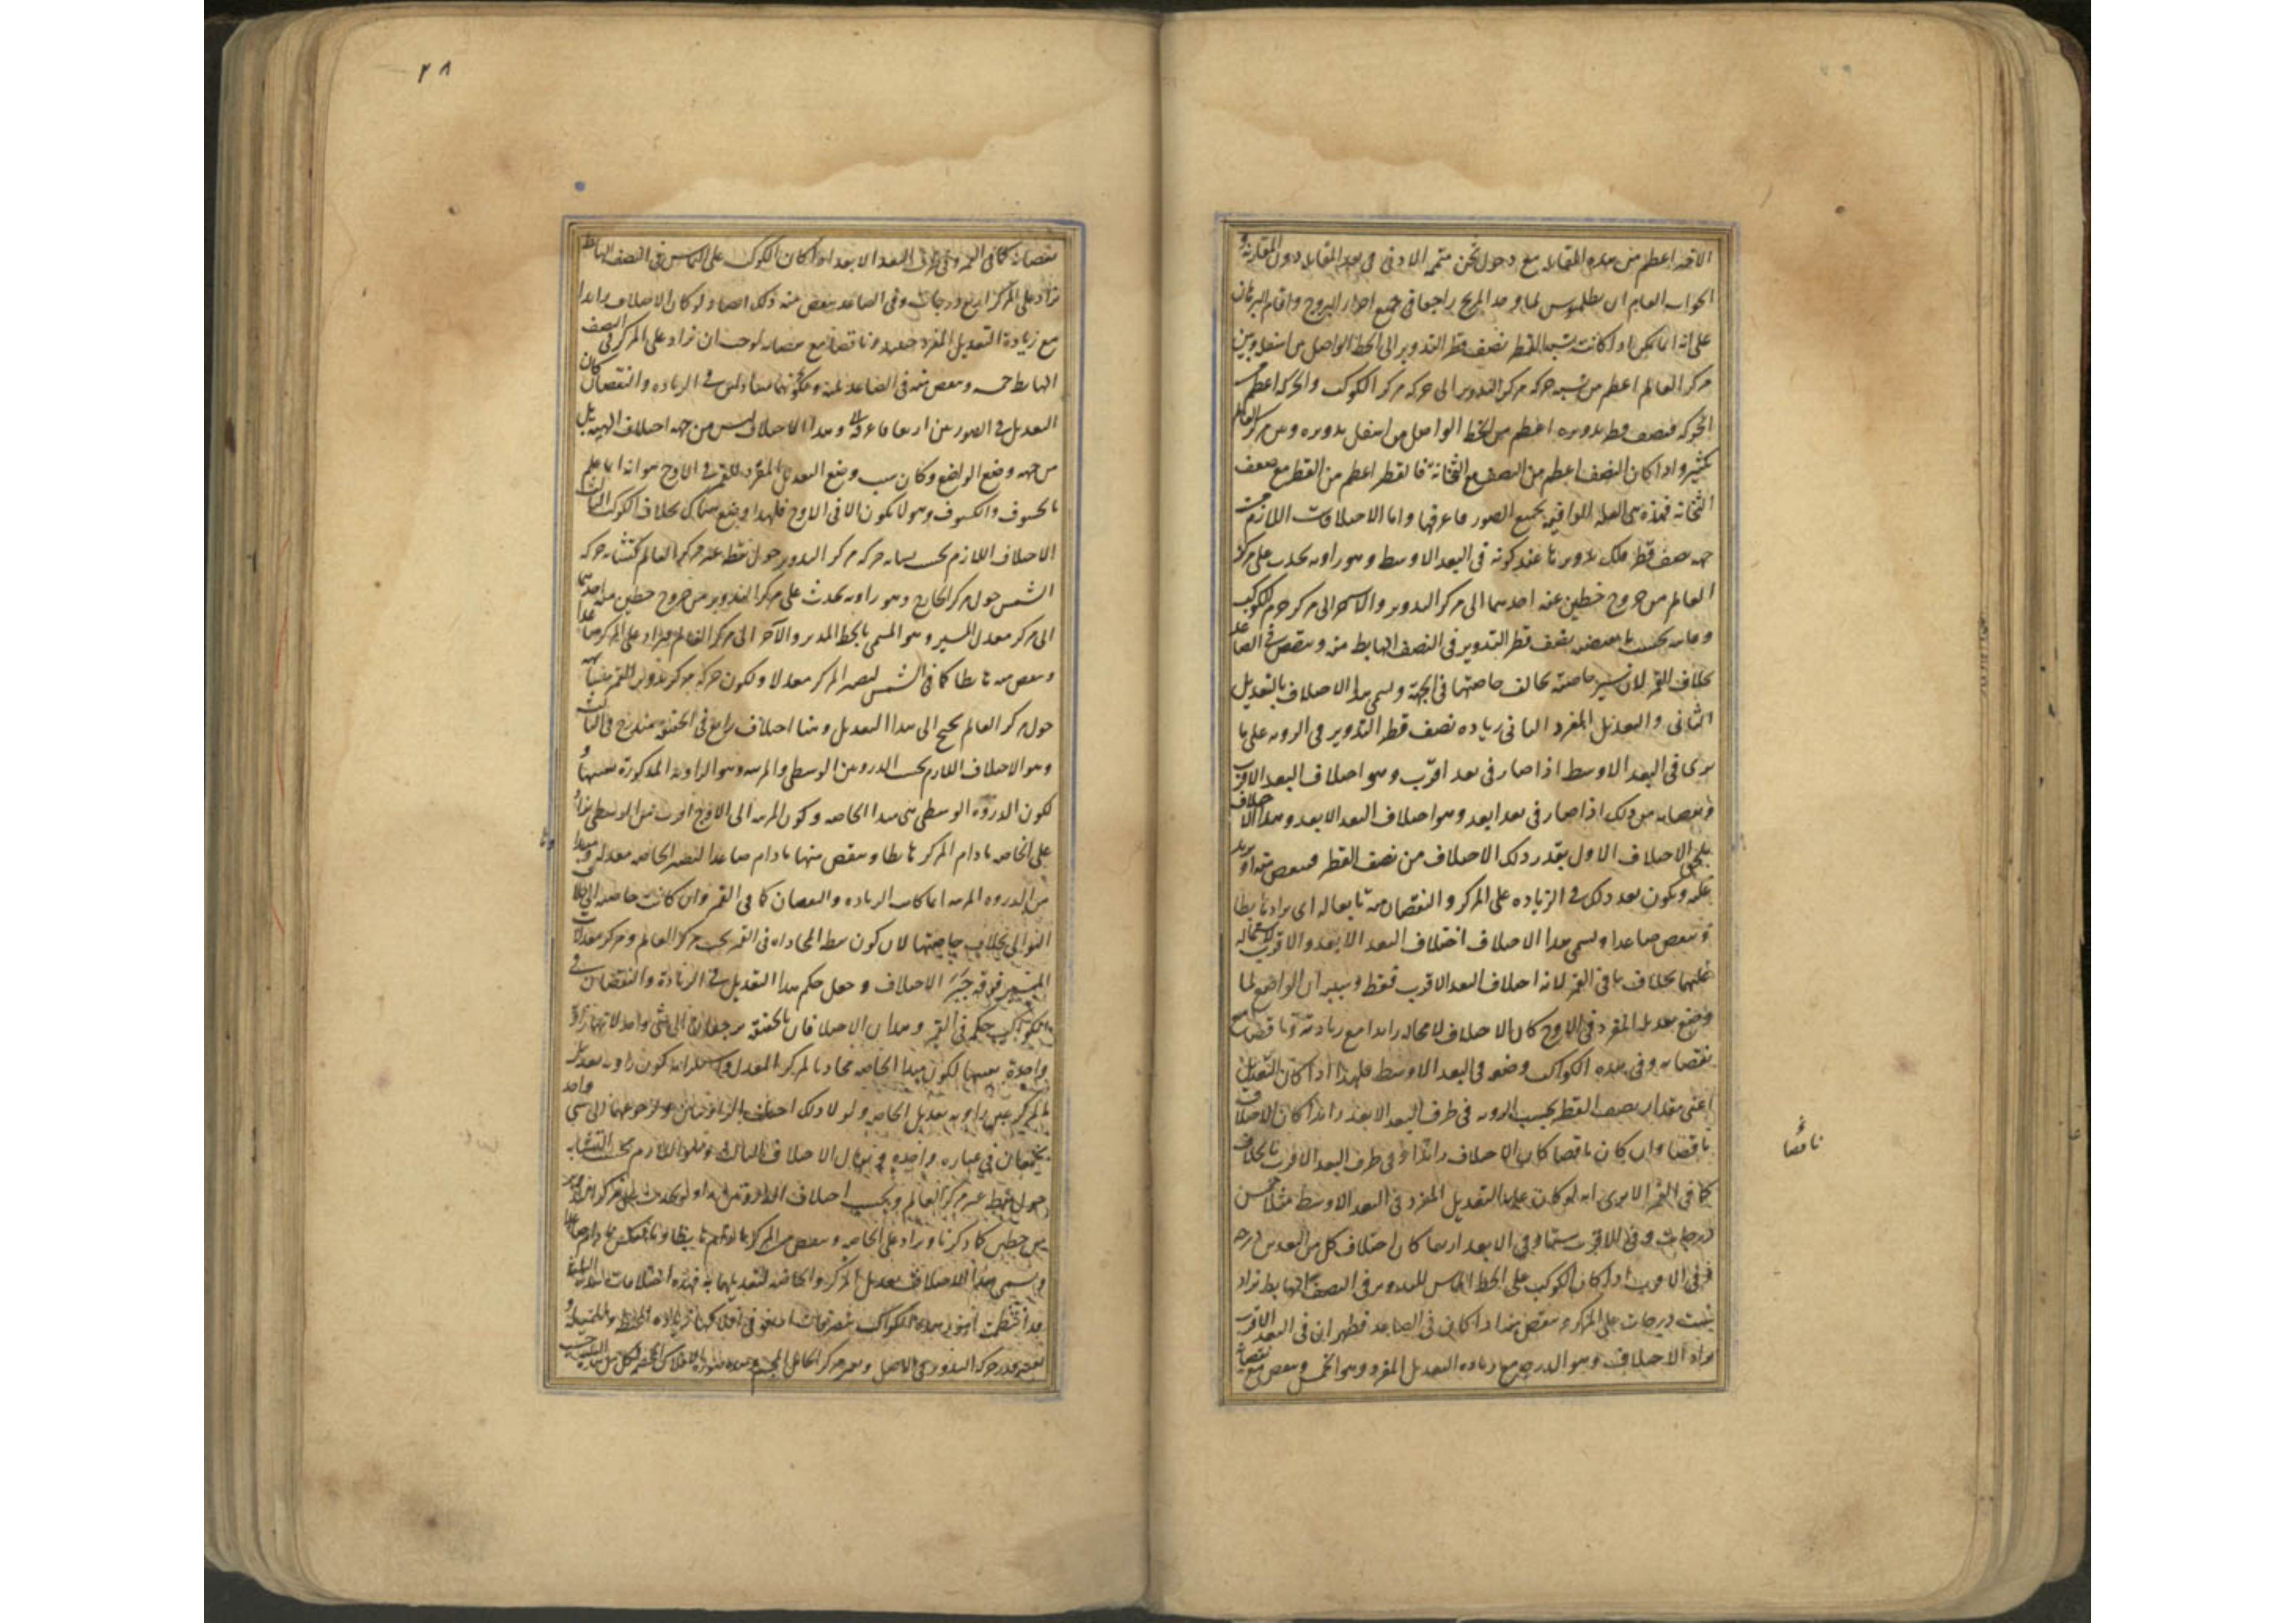 الاقصر اعظم من بعده المقابل مع دخول ثخن متمم الادنى في بعد المقابلة دون المقارنة و
الجواب العام ان بطلميوس لما وجد المريخ راجعا في جميع اجزاء البروج واقام البرهان
على انه انما يمكن اذا كانت نسبة نصف قطر التدوير الى الخط الواصل من اسفله وبين
مركز العالم اعظم من نسبة حركة مركز التدوير الى حركة مركز الكوكب والحركة اعظم من
الحركة فنصف قطر تدويره اعظم من الخط الواصل من اسفل تدويره وبين مركز العالم
بكثير واذا كان النصف اعظم من النصف مع الثخانة فالقطر اعظم من القطر مع ضعف
الثخانة فهذه هي العلة الواقية بجميع الصور فاعرفها واما الاختلافات اللازمة من
جهة نصف قطر فلك تدويرها عند كونه في البعد الاوسط وهو زاوية تحدث على مركز
العالم من خروج خطين عنه احدهما الى مركز التدوير والاخر الى مركز جرم الكوكب
وغايته بحسب ما يقتضيه نصف قطر التدوير في النصف الهابط منه وينقص في الصاعد
بخلاف القمر لان سير خاصته يخالف خاصتها في الجهة ويسمى هذا الاختلاف بالتعديل
الثاني والتعديل المفرد الثاني زيادة نصف قطر التدوير في الرؤية على ما
يرى في البعد الاوسط اذا صار في بعد اقرب وهو اختلاف البعد الاقرب
ونقصانه من ذلك اذا صار في بعد ابعد وهو اختلاف البعد الابعد وهذا الاختلاف
يلحق الاختلاف الاول بقدر ذلك الاختلاف من نصف القطر فينقص منه او يزيد
عليه ويكون بعد ذلك في الزيادة على المركز والنقصان منه تابعا له اى يزاد هابطا
وينقص صاعدا ويسمى هذا الاختلاف اختلاف البعد الابعد والاقرب لاشتماله
عليهما بخلاف ما في القمر لانه اختلاف البعد الاقرب فقط وسببه ان الواضع لما
وضع تعديله المفرد في الاوج كان الاختلاف لا محالة زائدا مع زيادته وناقصا مع
نقصانه وفي هذه الكواكب وضعه في البعد الاوسط فلهذا اذا كان التعديل
اعني مقدار نصف القطر بحسب الرؤية في طرف البعد الابعد زائدا كان الاختلاف
ناقصا وان كان ناقصا كان الاختلاف زائدا وفي طرف البعد الاقرب بالخلاف
ناقصا
كما في القمر الا يرى انه لو كان غاية التعديل المفرد في البعد الاوسط مثلا خمس
درجات وفي الاقرب ستا وفي الابعد اربعا كان اختلاف كل من البعدين درجة
ففي الاقرب اذا كان الكوكب على الخط المماس للتدوير في النصف الهابط تزاد
ست درجات على المركز وينقص منه اذا كان في الصاعد فظهر ان في البعد الاقرب
يزاد الاختلاف وهو الدرجة مع زيادة التعديل المفرد وهو الخمس وينقص مع نقصانه
٢٨
نقصانه كما في القمر وفي طرف البعد الابعد اذا كان الكوكب على المماس في النصف الهابط
تزاد على المركز اربع درجات وفي الصاعد ينقص منه ذلك ايضا ولو كان الاختلاف زائدا
مع زيادة التعديل المفرد وناقصا مع نقصانه لوجب ان تزاد على المركز في النصف
الهابط خمسة وينقص منه في الصاعد
التعديل في الصورتين اربعا فاعرفه وهذا الاختلاف ليس من جهة اختلاف الهيئة بل
من جهة وضع الواضع وكان سبب وضع التعديل المفرد للقمر في الاوج هو انه انما علم
بالخسوف والكسوف وهو لا يكون الا في الاوج فلهذا وضع هناك بخلاف الكواكب الثالث
الاختلاف اللازم بحسب تشابه حركة مركز التدوير حول نقطة غير مركز العالم كتشابه حركة
الشمس حول مركز الخارج وهو زاوية تحدث على مركز التدوير من خروج خطين منه احدهما
الى مركز معدل المسير وهو المسمى بالخط المدير والآخر الى مركز العالم فيزاد على المركز صاعدا
وينقص منه هابطا كما في الشمس ليصير المركز معدلا ولكون حركة مركز تدوير القمر متشابهة
حول مركز العالم لم يحتج الى هذا التعديل وهنا اختلاف رابع في الحقيقة مندرج في الثالث
وهو الاختلاف اللازم بحسب الذروتين الوسطى والمرئية وهو الزاوية المذكورة بعينها و
لكون الذروة الوسطى هي مبدا الخاصة وكون المرئية الى الاوج اقرب من الوسطى يزاد
على الخاصة ما دام المركز هابطا وينقص منها ما دام صاعدا لتصير الخاصة معدلة ومبدا
من الذروة المرئية
التوالي بخلاف خاصتها لان كون نقطة المحاذاة في القمر تحت مركز العالم ومركز معدلات
المسير فوقه جبر الاختلاف وجعل حكم هذا التعديل في الزيادة والنقصان في
الكواكب حكمه في القمر وهذان الاختلافان بالحقيقة يرجعان الى شئ واحد لانهما زاوية
واحدة بعينها لكون مبدا الخاصة محاذيا لمركز المعدل
المركز عين زاوية تعديل الخاصة ولولا ذلك اختلف الزاويتان ولرجوعهما الى شئ واحد
يجمعان في عبارة واحدة ويقال الاختلاف الثالث هو اللازم بحسب التشابه
حول نقطة غير مركز العالم وبحسب اختلاف الذروتين
بين خطين كما ذكرنا ويزاد على الخاصة وينقص من المركز ما دام هابطا وبالعكس ما دام صاعدا
ويسمى هذا الاختلاف تعديل المركز والخاصة لتعديلهما به فهذه اختلافات ثلاثة